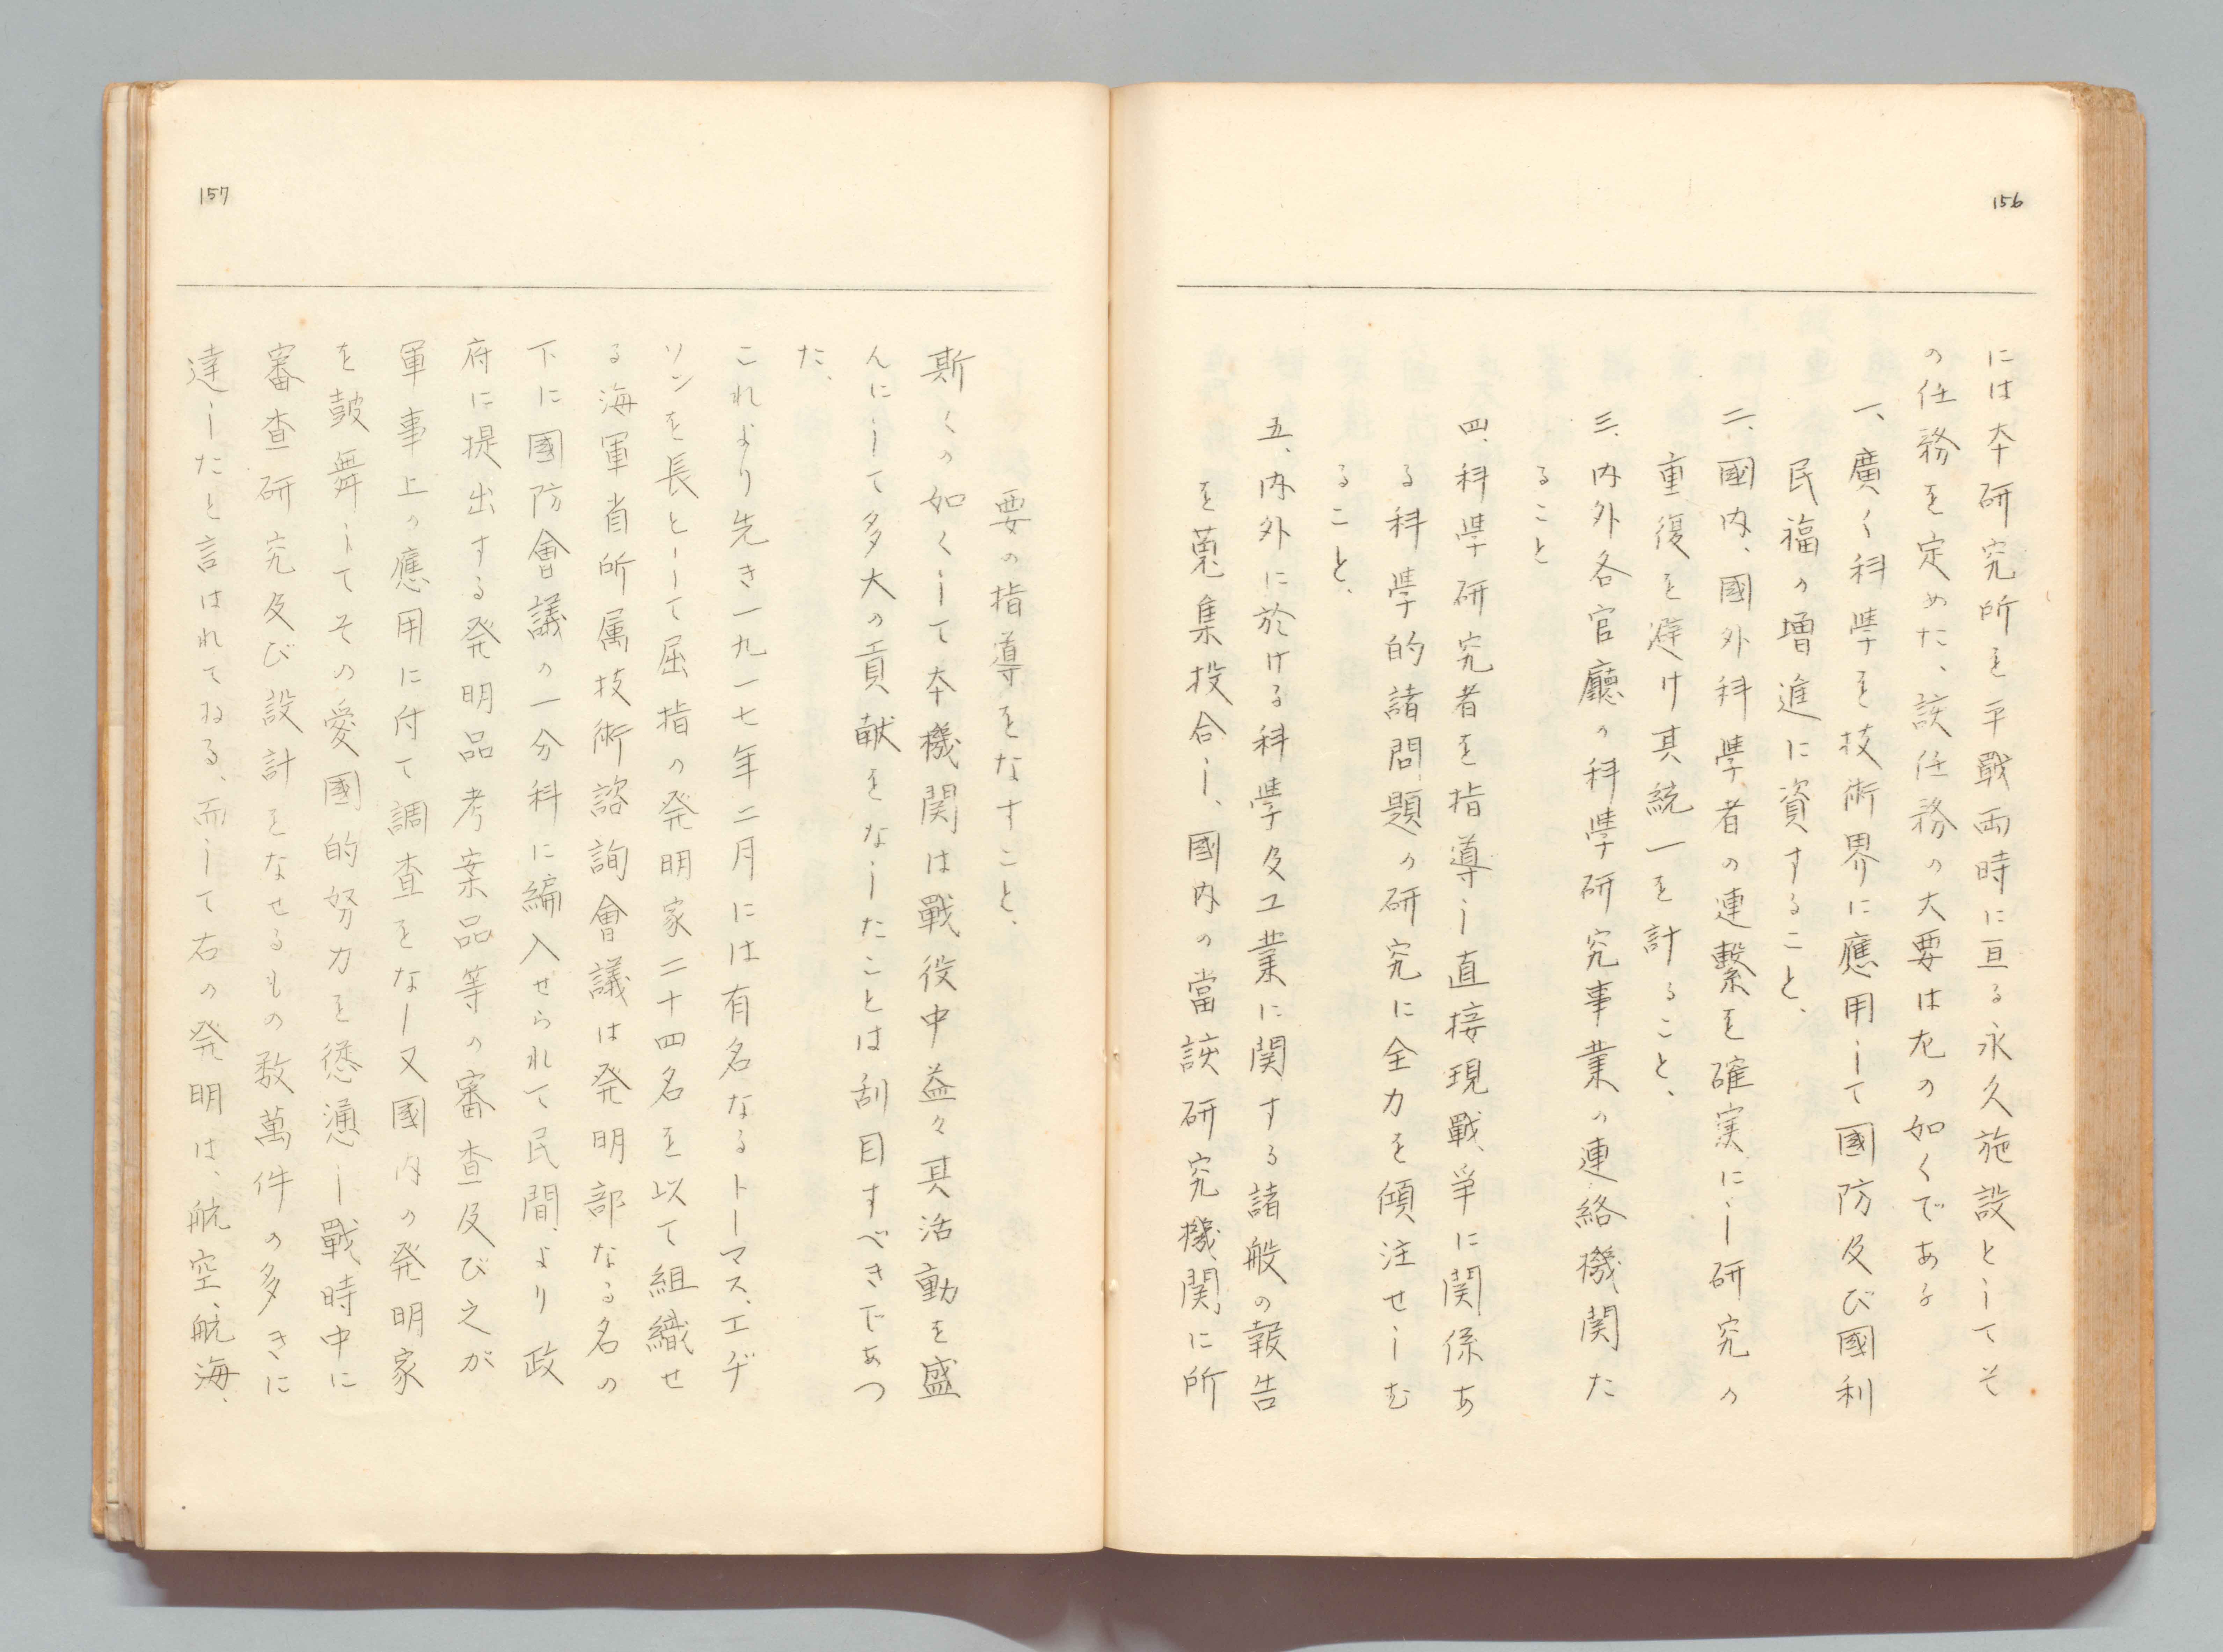 156
には本研究所を平戰両時に亘る永久施設としてそ
の任務を定めた、該任務の大要は左の如くである
一、廣く科學を技術界に應用して國防及び國利
民福の増進に資すること、
二、國内、國外科學者の連繋を確実にし研究の
重復を避け其統一を計ること、
三、内外各官廳の科學研究事業の連絡機関た
ること
四、科學研究者を指導し直接現戰爭に関係あ
る科學的諸問題の研究に全力を傾注せしむ
ること、
五、内外に於ける科學及工業に関する諸般の報告
を蒐集投合し、國内の當該研究機関に所
157
要の指導をなすこと、
斯くの如くして本機関は戰役中益々其活動を盛
んにして多大の貢献をなしたことは刮目すべきであつ
た、
これより先き一九一七年二月には有名なるトーマス、エヂ
ソンを長として屈指の発明家二十四名を以て組織せ
る海軍省所属技術諮詢會議は発明部なる名の
下に國防會議の一分科に編入せられて民間より政
府に提出する発明品考案品等の審査及び之が
軍事上の應用に付て調査をなし又國内の発明家
を鼓舞してその愛國的努力を慫慂し戰時中に
審査研究及び設計をなせるもの数萬件の多きに
達したと言はれてゐる、而して右の発明は、航空、航海、